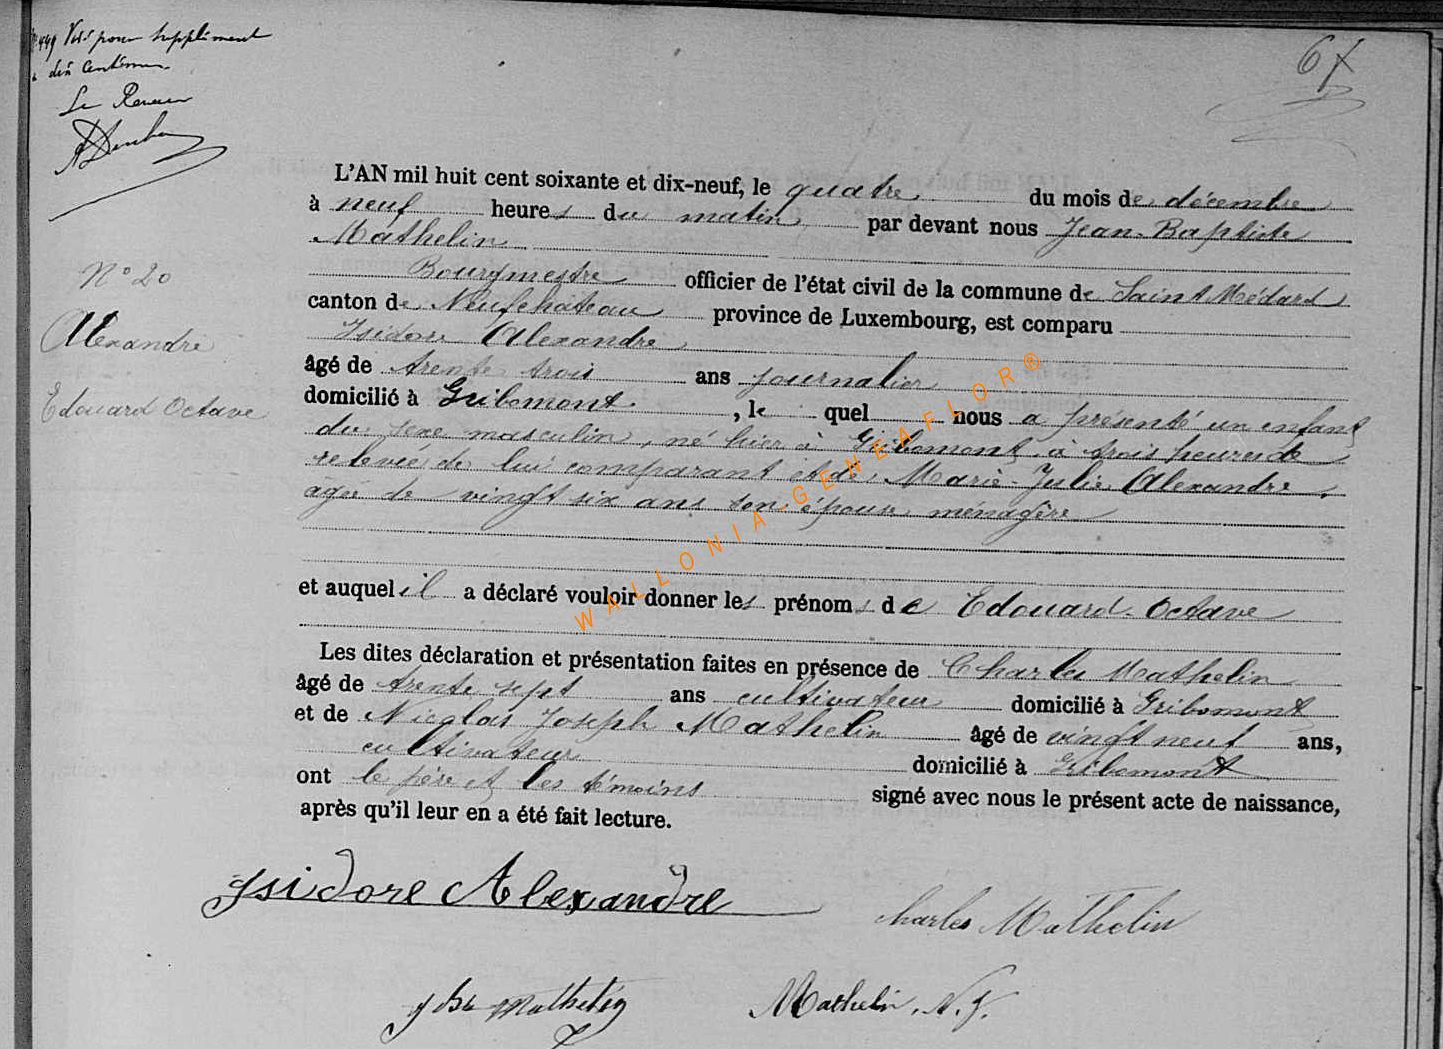 449 Visé pour supplément
dix centimes
Le Receveur
67
L'AN mil huit cent soixante et dix-neuf, le quatre du mois de décembre
à neuf heures du matin par devant nous Jean-Baptiste
Mathelin
Bourgmestre officier de l'état civil de la commune de Saint Médard
canton de Neufchateau province de Luxembourg, est comparu
Isidore Alexandre
âgé de trente trois ans journalier
domicilié à Gribomont, le quel nous a présenté un enfant
du sexe masculin, né hier à Gribomont à trois heures de
relevée de lui comparant et de Marie-Julie Alexandre,
âgée de vingt six ans son épouse ménagère
et auquel il a déclaré vouloir donner les prénoms de Edouard-Octave
Les dites déclaration et présentation faites en présence de Charles Mathelin
âgé de trente sept ans cultivateur domicilié à Gribomont
et de Nicolas Joseph Mathelin âgé de vingt neuf ans,
cultivateur domicilié à Gribomont
ont le père et les témoins signé avec nous le présent acte de naissance,
après qu'il leur en a été fait lecture.
N° 20
Alexandre
Edouard Octave
Isidore Alexandre
Charles Mathelin
J Bte Mathelin
Mathelin, N. J.
WALLONIA GENEAFLOR®